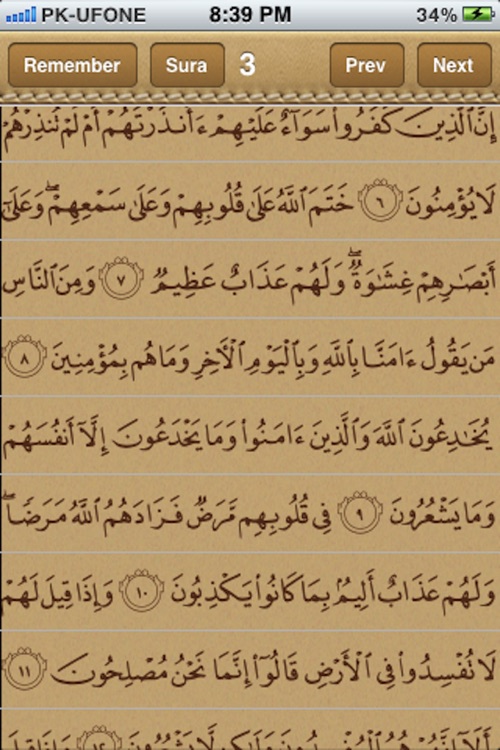 PK-UFONE 8:39 PM 34%
Remember Sura 3 Prev Next
إِنَّ ٱلَّذِينَ كَفَرُوا۟ سَوَآءٌ عَلَيْهِمْ ءَأَنذَرْتَهُمْ أَمْ لَمْ تُنذِرْهُمْ
لَا يُؤْمِنُونَ ٦ خَتَمَ ٱللَّهُ عَلَىٰ قُلُوبِهِمْ وَعَلَىٰ سَمْعِهِمْ ۖ وَعَلَىٰٓ
أَبْصَـٰرِهِمْ غِشَـٰوَةٌ ۖ وَلَهُمْ عَذَابٌ عَظِيمٌ ٧ وَمِنَ ٱلنَّاسِ
مَن يَقُولُ ءَامَنَّا بِٱللَّهِ وَبِٱلْيَوْمِ ٱلْأَخِرِ وَمَا هُم بِمُؤْمِنِينَ ٨
يُخَـٰدِعُونَ ٱللَّهَ وَٱلَّذِينَ ءَامَنُوا۟ وَمَا يَخْدَعُونَ إِلَّآ أَنفُسَهُمْ
وَمَا يَشْعُرُونَ ٩ فِى قُلُوبِهِم مَّرَضٌ فَزَادَهُمُ ٱللَّهُ مَرَضًا ۖ
وَلَهُمْ عَذَابٌ أَلِيمٌۢ بِمَا كَانُوا۟ يَكْذِبُونَ ١٠ وَإِذَا قِيلَ لَهُمْ
لَا تُفْسِدُوا۟ فِى ٱلْأَرْضِ قَالُوٓا۟ إِنَّمَا نَحْنُ مُصْلِحُونَ ١١